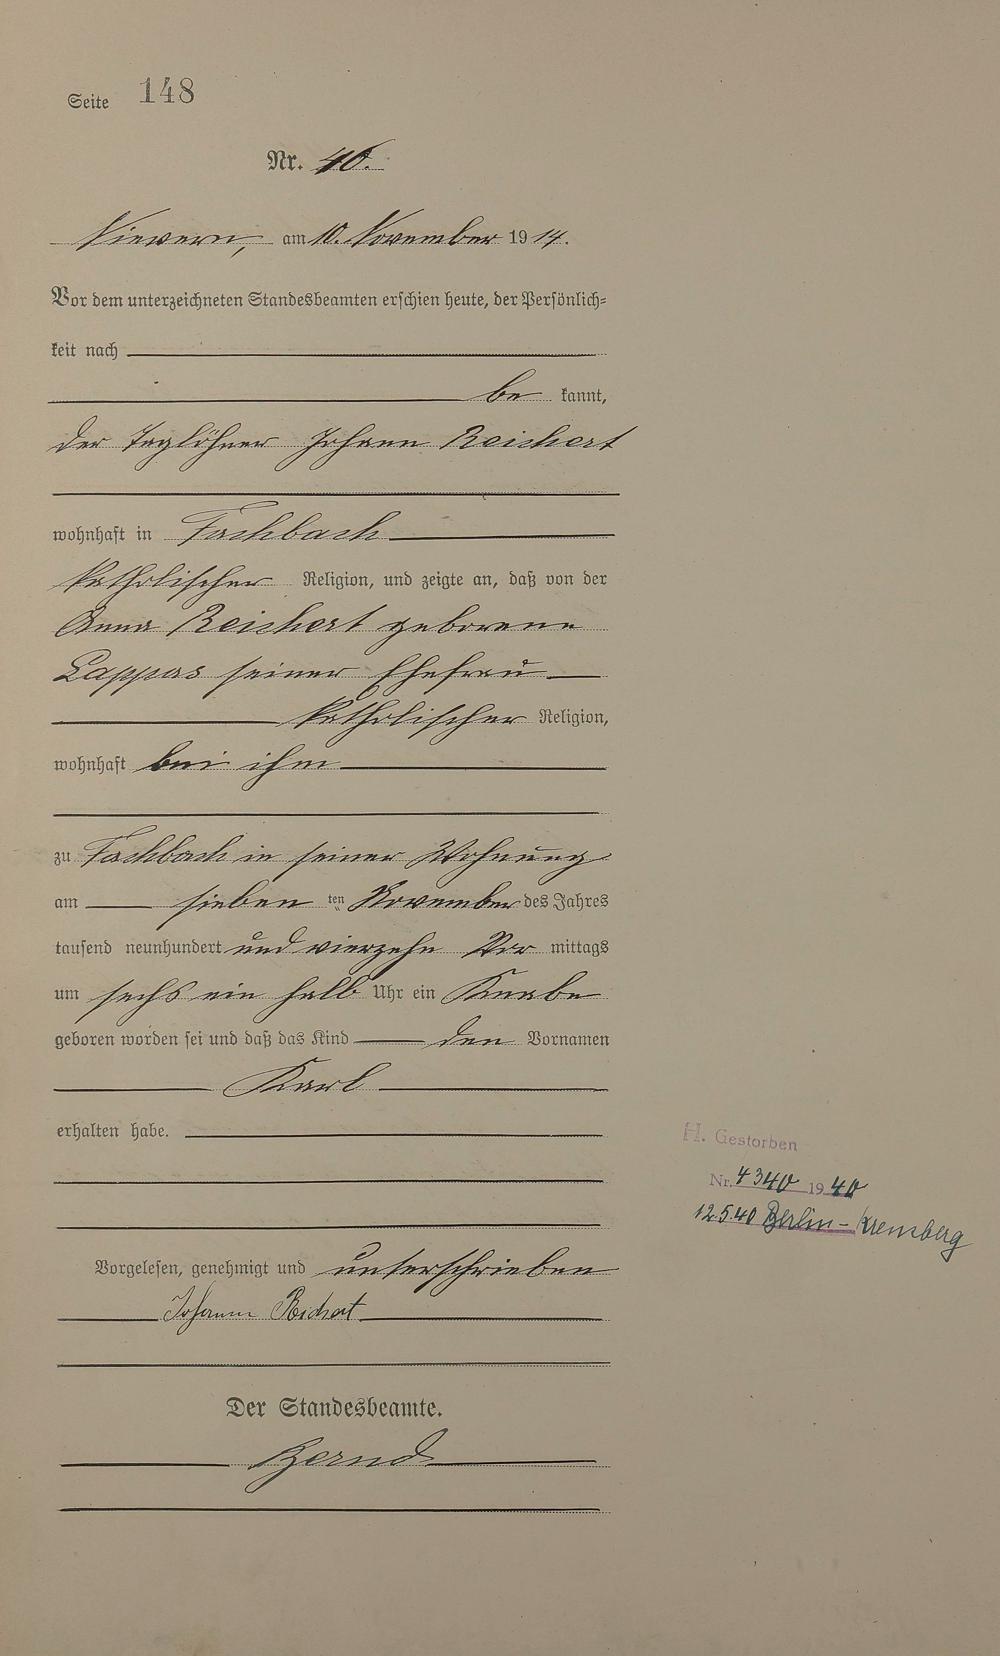 Seite 148
Nr. 46.
Nievern, am 10. November 1914.
Vor dem unterzeichneten Standesbeamten erschien heute, der Persönlich=
keit nach
be kannt,
der Taglöhner Johann Reichert
wohnhaft in Fachbach
katholischer Religion, und zeigte an, daß von der
Anna Reichert geborene
Lappas seiner Ehefrau
katholischer Religion,
wohnhaft bei ihm
zu Fachbach in seiner Wohnung
am sieben ten November des Jahres
tausend neunhundert und vierzehn Vor mittags
um sechs ein halb Uhr ein Knabe
geboren worden sei und daß das Kind den Vornamen
Karl
erhalten habe.
H. Gestorben
Nr. 4340 1940
12.5.40 Berlin-
Vorgelesen, genehmigt und unterschrieben
Johann Reichert
Der Standesbeamte.
Bernd